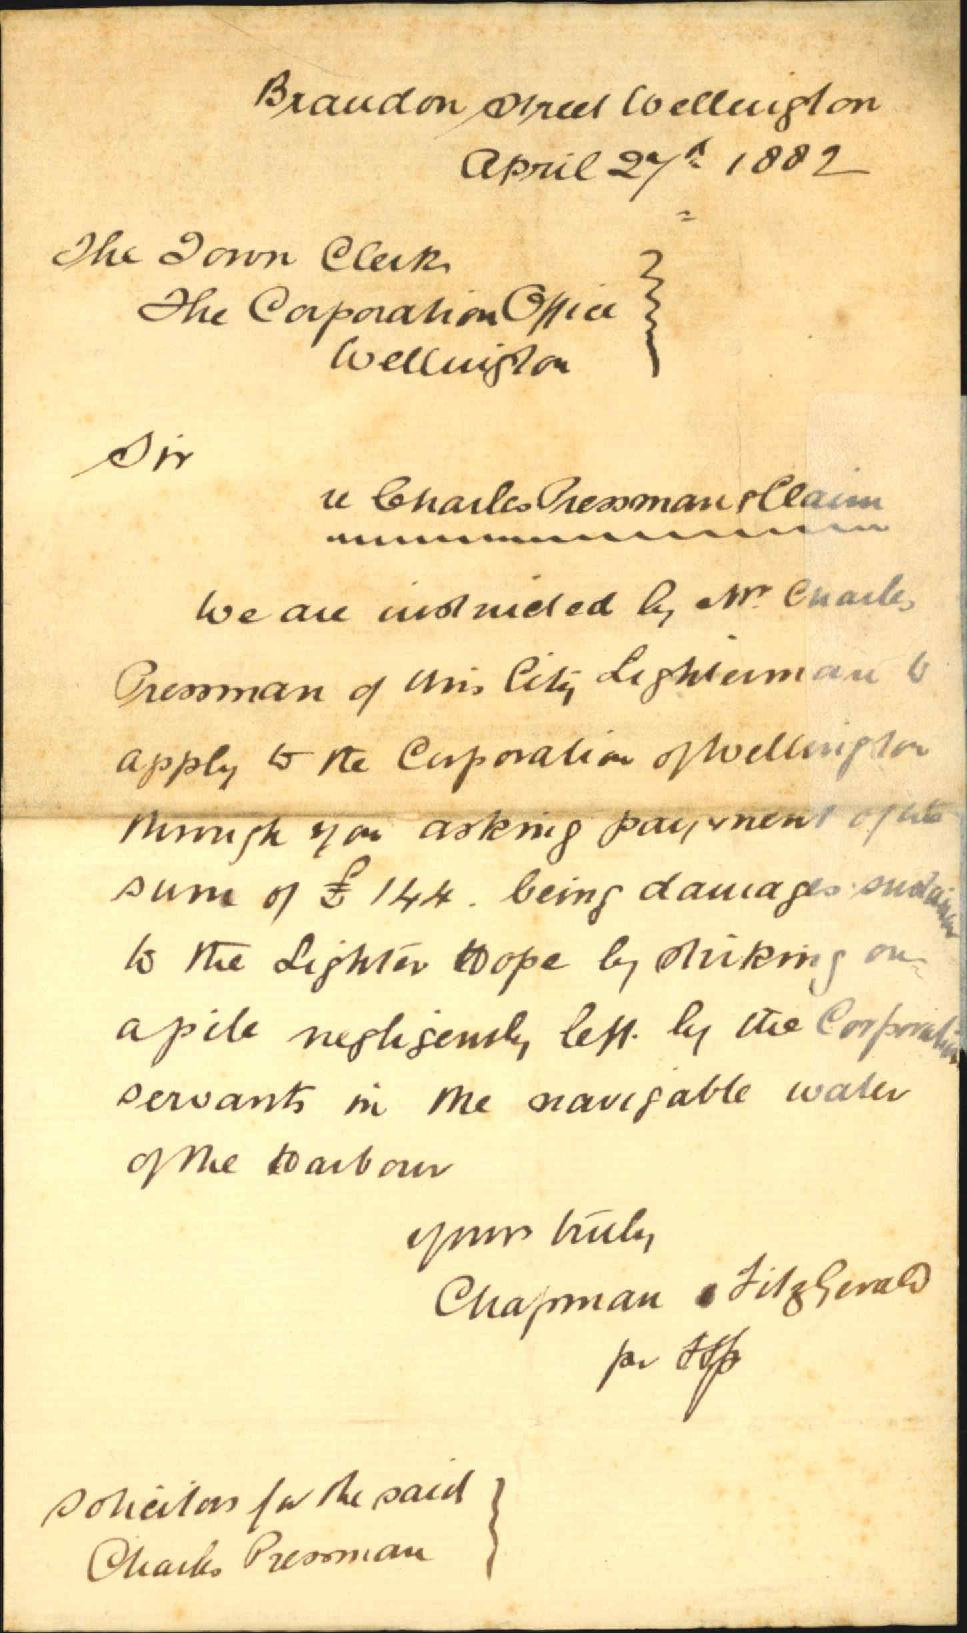 Brandon Street Wellington
April 27th 1882
The Town Clerk
The Corporation Office
Wellington
Sir
re Charles Pressman's Claim
We are instructed by Mr. Charles
Pressman of this City Lighterman to
apply to the Corporation of Wellington
through you asking payment of the
sum of £144. being damages sustained
to the Lighter Hope by striking on
a pile negligently left by the Corporation
servants in the navigable water
of the Harbour
yours truly
Chapman & FitzGerald
pr
Solicitors for the said
Charles Pressman